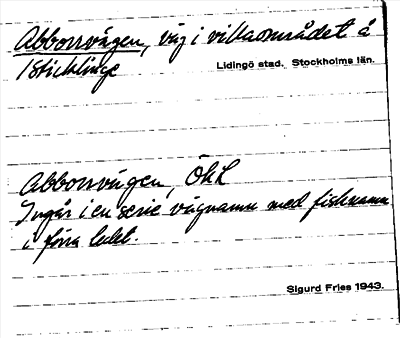 Abborrvägen, väg i villaområdet å
Sticklinge
Lidingö stad. Stockholms län.
Abborrvägen, ÖhL
Ingår i en serie vägnamn med fisknamn
i förra ledet.
Sigurd Fries 1943.